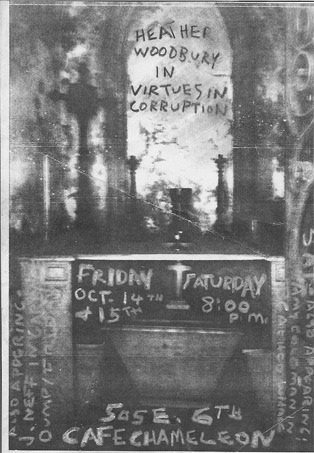 HEATHER
WOODBURY
IN
VIRTUES IN
CORRUPTION
FRIDAY SATURDAY
OCT. 14TH 8:00
& 15TH P.M.
505 E. 6TH
CAFE CHAMELEON
ALSO APPEARING:
J. NEFF IN
SAT.
ALSO APPEARING: